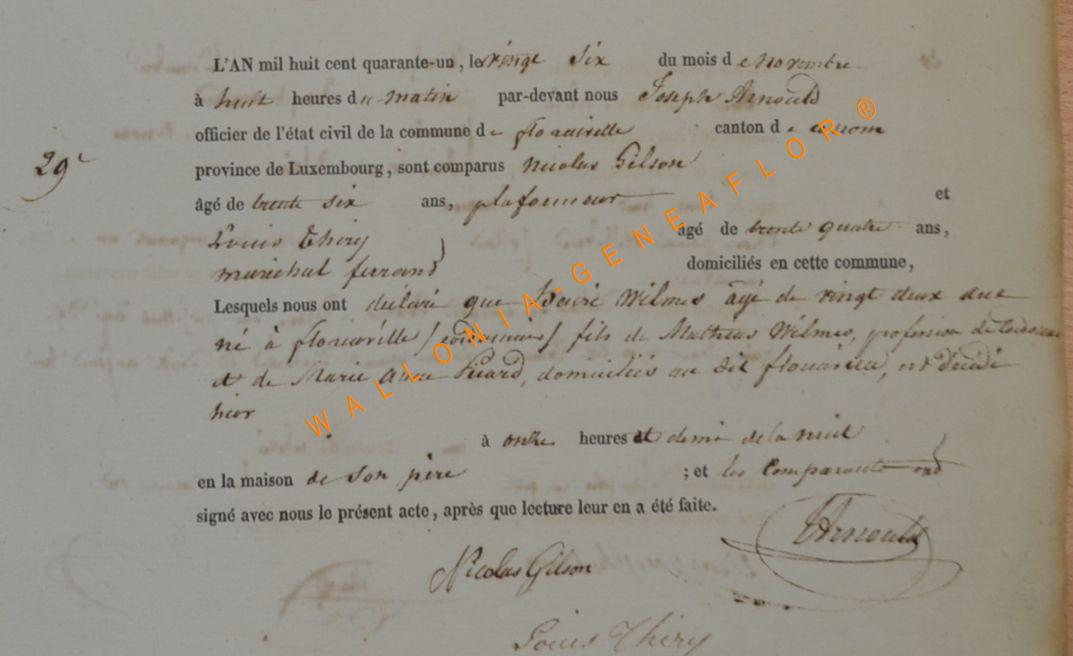 L'AN mil huit cent quarante-un, le vingt six du mois de Novembre
à huit heures du matin par-devant nous Joseph Arnould
officier de l'état civil de la commune de florenville canton de
29e province de Luxembourg, sont comparus Nicolas Gilson
âgé de trente six ans, plafonneur et
Louis Thiry âgé de trente quatre ans,
maréchal ferrand domiciliés en cette commune,
Lesquels nous ont déclaré que Wilmes âgé de vingt deux ans
né à florenville fils de Mathias Wilmes,
et de Marie Anne Picard, domiciliés au dit est décédé
hier
à onze heures et demie de la nuit
en la maison de son père ; et les Comparants ont
signé avec nous le présent acte, après que lecture leur en a été faite.
Arnould
Nicolas Gilson
Louis Thiry
WALLONIA-GENEAFLOR®